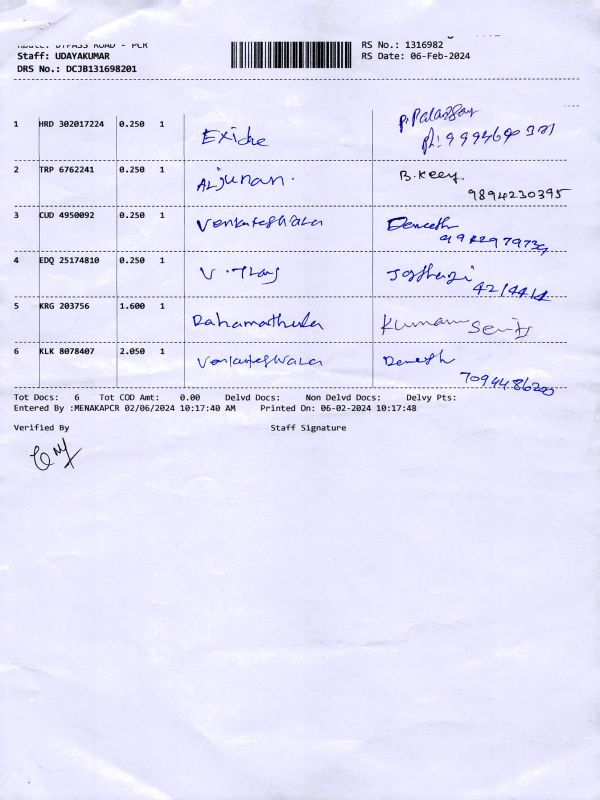 Route: BYPASS ROAD - PCR
RS No.: 1316982
Staff: UDAYAKUMAR
RS Date: 06-Feb-2024
DRS No.: DCJB131698201
1 HRD 302017224 0.250 1 Exide
2 TRP 6762241 0.250 1 Arjunan. B.
9894230395
3 CUD 4950092 0.250 1 Venkateshwara
4 EDQ 25174810 0.250 1
5 KRG 203756 1.600 1 Rahamathulla
6 KLK 8078407 2.050 1 Venkateshwara
7094486200
Tot Docs: 6 Tot COD Amt: 0.00 Delvd Docs: Non Delvd Docs: Delvy Pts:
Entered By :MENAKAPCR 02/06/2024 10:17:40 AM Printed On: 06-02-2024 10:17:48
Verified By Staff Signature